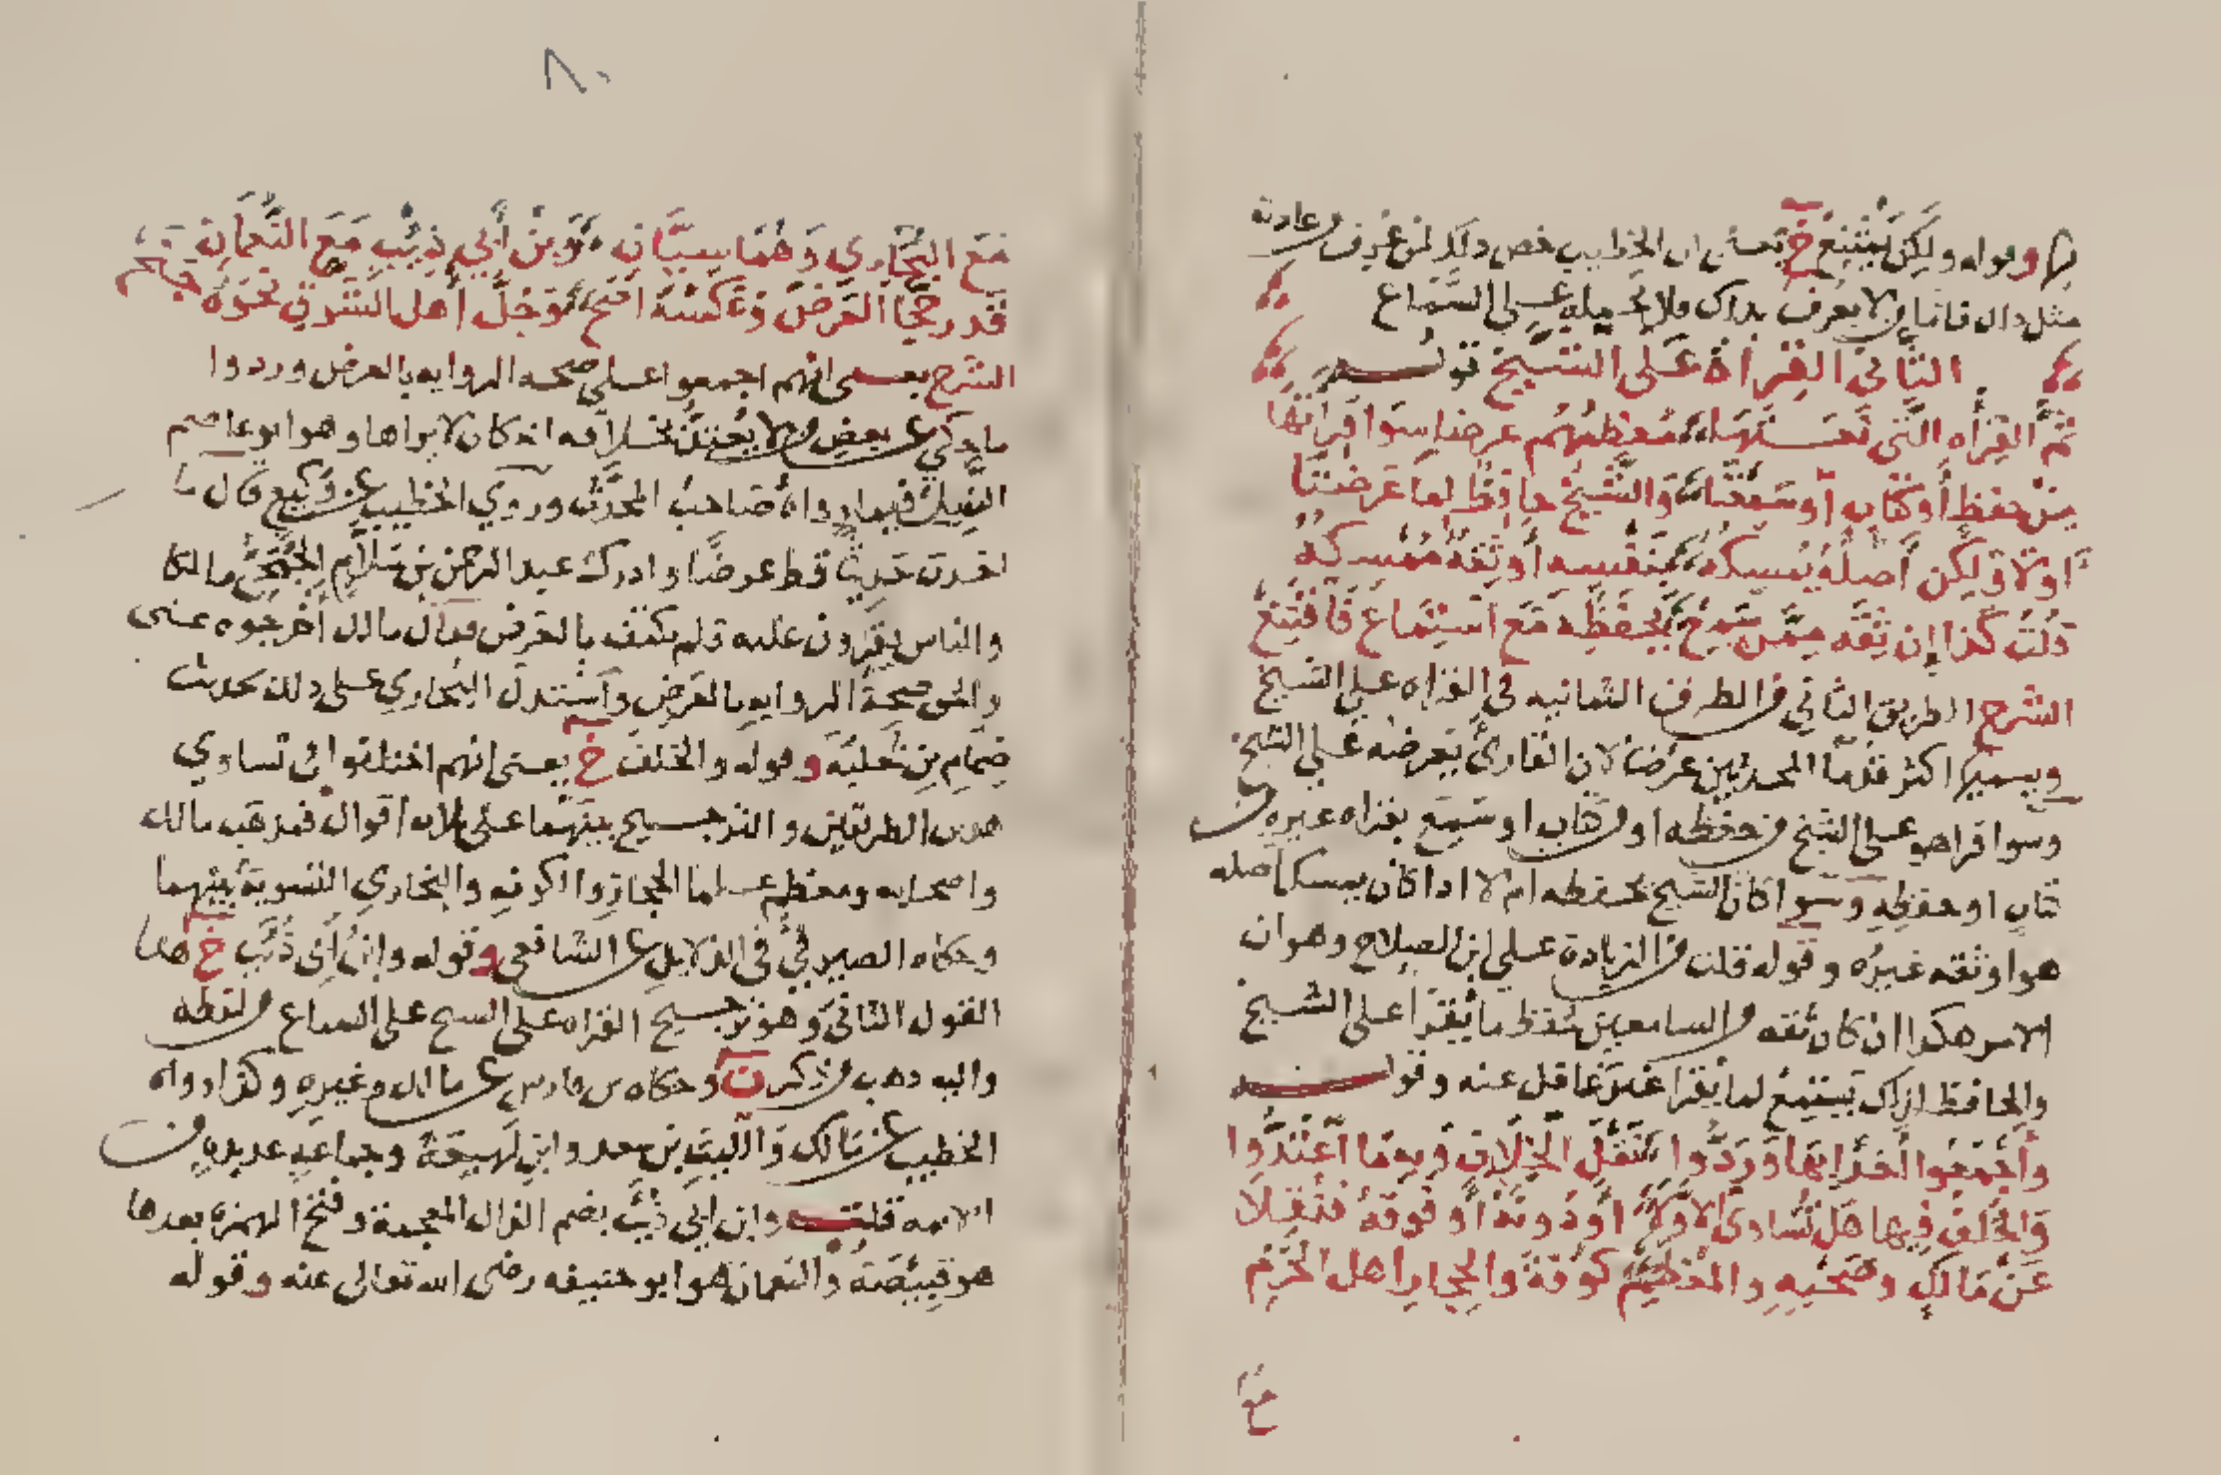 بها وقوله ولكن يمتنع خ يعني ان الخطيب خص ذلك لمن عرف من عادته
مثل ذلك فاما من لا يعرف بذاك فلا يحمله على السماع
الثاني القراة على الشيخ قولـــه
ثم القراه التي نعتها معظمهم عرضا سوا قراتها
من حفظ أو كتاب أو سمعتا والشيخ حافظ لما عرضتا
أو لا ولكن أصله يمسكه بنفسه أو ثقة ممسكه
قلت كذا إن ثقه ممن سمع يحفظه مع استماع فاقتنع
الشرح الطريق الثاني من الطرق الثمانيه في القراه على الشيخ
ويسميها اكثر قدما المحدثين عرضا لان القاري يعرضه على الشيخ
وسوا قرا هو على الشيخ من حفظه او من كتاب او سمع بقراه غيره من
كتاب او حفظه وسوا كان الشيخ يحفظه ام لا اذا كان يمسك اصله
هو او ثقه غيره وقوله قلت من الزيادة على ابن الصلاح وهو ان
الامر هكذا ان كان ثقه من السامعين يحفظ ما يقرا على الشيخ
والحافظ اذاك يستمع لما يقرا غير غافل عنه وقولـــه
وأجمعوا أخذا بها وردوا نقل الخلاف وبه ما اعتدوا
والخلف فيها هل تساوي الأولا أو دونه أو فوقه فنقلا
عن مالك وصحبه ومعظم كوفة والحجاز اهل الحرم
مع
٨٠
مع البخاري وهما سيان وابن أبي ذئب مع النعمان
قد رجحا العرض وعكسه أصح وجل أهل الشرق نحوه جنح
الشرح يعني انهم اجمعوا على صحه الروايه بالعرض وردوا
ما حكي عن بعض من لا يعتد بخلافه انه كان لا يراها وهو ابو عاصم
النبيل فيما رواه صاحب المحدث وروي الخطيب عن وكيع قال ما
اخذت حديثا قط عرضا وادرك عبد الرحمن بن سلام الجمحي مالكا
والناس يقرون عليه فلم يكتف بالعرض فقال مالك أخرجوه عني
والحق صحة الروايه بالعرض واستدل البخاري على ذلك بحديث
ضمام بن ثعلبة وقوله والخلف خ يعني انهم اختلفوا في تساوي
هذين الطريقين والترجيح بينهما على ثلاثه أقوال فمذهب مالك
واصحابه ومعظم علما الحجاز والكوفه والبخاري التسوية بينهما
وحكاه الصيرفي في الدلايل عن الشافعي وقوله وابن أبي ذئب خ هذا
القول الثاني وهو ترجيح القراه على الشيخ على السماع من لفظه
واليه ذهب من ذكر ن وحكاه بن فارس عن مالك وغيره وكذا رواه
الخطيب عن مالك والليث بن سعد وابن لهيعة وجماعة عديده من
الايمه قلـــت وابن ابي ذئب بضم الذال المعجمة وفتح الهمزه بعدها
هو قبيصة والنعمان هو ابو حنيفه رضي الله تعالى عنه وقوله